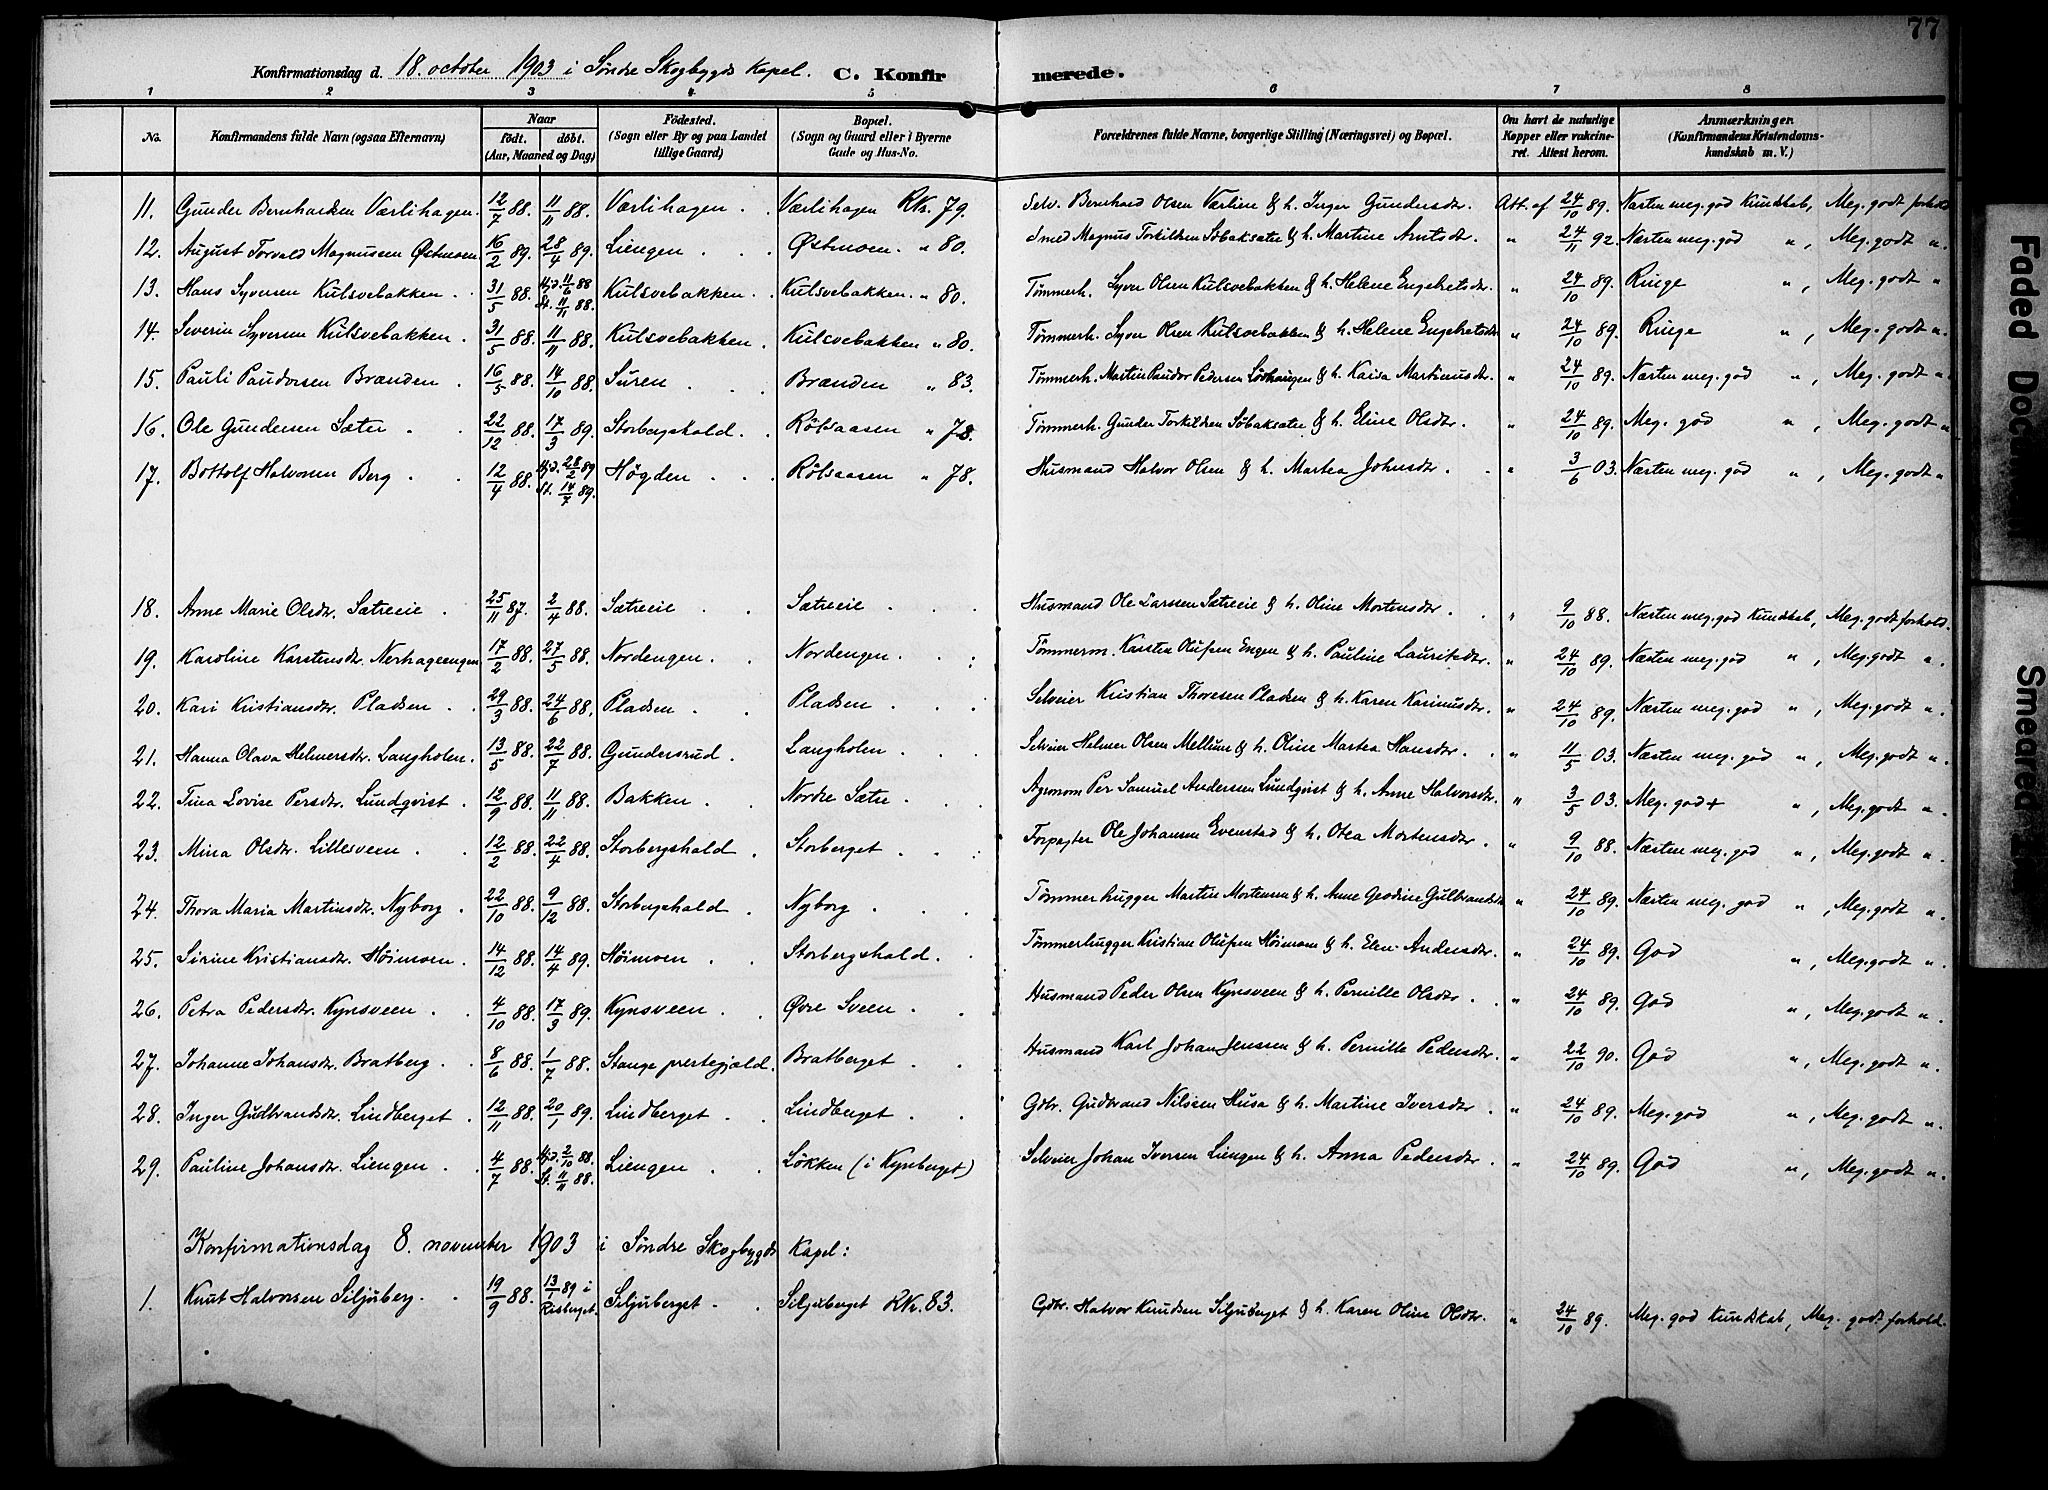 77
Konfirmationsdag d. 18. october 1903 i Søndre Skogbygds Kapel. C. Konfirmerede.
1 2 3 4 5 6 7 8
No. Konfirmandens fulde Navn (ogsaa Efternavn) Naar født. døbt. (Aar, Maaned og Dag) Fødested. (Sogn eller By og paa Landet tillige Gaard) Bopæl. (Sogn og Gaard eller i Byerne Gade og Hus-No. Forældrenes fulde Navne, borgerlige Stilling (Næringsvei) og Bopæl. Om havt de naturlige Kopper eller vakcineret. Attest herom. Anmærkninger. (Konfirmandens Kristendomskundskab m. V.)
11. Gunder Bernhardsen Værlihagen. 12/7 88. 11/11 88. Værlihagen. Værlihagen RKr. 79. Selv. Bernhard Olsen Værliens & h. Inger Gundersdtr. Att. af 24/10 89. Næsten meg. god Kundskab, Meg. godt forhold
12. August Torvald Magnussen Østmoen. 16/2 89. 28/4 89. Liengen. Østmoen. " 80. Smed Magnus Torkildsen Søbaksæter & h. Martine Arntsdtr. " 24/11 92 Næsten meg. god ", Meg. godt ".
13. Hans Syversen Kulsvebakken. 31/5 88. Hjd. 11/6 88 St. 11/11 88. Kulsvebakken. Kulsvebakken. " 80. Tømmerh. Syver Olsen Kulsvebakken & h. Helene Engebretsdtr. " 24/10 89. Ringe ", Meg. godt "
14. Severin Syversen Kulsvebakken. 31/5 88. 11/11 88. Kulsvebakken. Kulsvebakken " 80. Tømmerh. Syver Olsen Kulsvebakken & h. Helene Engebretsdtr " 24/10 89. Ringe ", Meg. godt ".
15. Pauli Paudorsen Brænden. 16/5 88. 14/10 88. Suren. Brænden " 83. Tømmerh. Martin Paudor Pedersen & h. Kaisa Martinusdtr. " 24/10 89. Næsten meg. god ", Meg. godt ".
16. Ole Gundersen Sæter. 22/12 88. 17/3 89. Storbergshold. Rølsaasen " 78. Tømmerh. Gunder Torkildsen Søbaksæter & h. Eline Olsdtr. " 24/10 89. Meg. god ", Meg. godt "
17. Bottolf Halvorsen Berg. 12/4 88. Hjd. 28/2 89 St. 14/7 89. Høgden. Rølsaasen " 78. Husmand Halvor Olsen & h. Martea Johnsdtr. " 3/6 03. Næsten meg. god ", Meg. godt "
18. Anne Marie Olsdtr. Sætreeie. 25/11 87. 2/4 88. Sætreeie. Sætreeie. Husmand Ole Larssen Sætreeie & h. Oline Mortensdtr. " 9/10 88. Næsten meg. god Kundskab, Meg. godt forhold.
19. Karoline Karstensdtr. Nerhageengen 17/2 88. 27/5 88. Nordengen. Nordengen. Tømmerm. Karsten Olufsen Engen & h. Pauline Lauritsdtr. " 24/10 89. Næsten meg. god ", Meg. godt ".
20. Kari Kristiansdtr. Pladsen. 29/3 88. 24/6 88. Pladsen. Pladsen. Selveier Kristian Thoresen Pladsen & h. Karen Karinusdtr. " 24/10 89. Næsten meg. god ", Meg. godt ".
21. Hanna Olava Helmersdtr. Langholen. 13/5 88. 22/7 88. Gundersrud. Langholen. Selveier Helmer Olsen Mellum & h. Oline Martea Hansdtr. " 11/5 03. Næsten meg. god ", Meg. godt ".
22. Tina Lovise Persdtr. Lundqvist. 12/9 88. 11/11 88. Bakken. Nordre Sætre. Agronom Per Samuel Andersen Lundqvist & h. Anne Halvorsdtr. " 3/5 03. Meg. god + ", Meg. godt ".
23. Mina Olsdtr. Lillesveen. 12/2 88. 22/4 88. Storbergshold. Storberget. Forpagter Ole Johansen Evenstad & h. Otea Mortensdtr. " 9/10 88. Næsten meg. god ", Meg. godt ".
24. Thora Maria Martinsdtr. Nyborg. 22/10 88. 9/12 88. Storbergshold. Nyborg. Tømmerhugger Martin Mortensen & h. Anne Geodine Gulbrandsdtr " 24/10 89. Næsten meg. god ", Meg. godt ".
25. Sirine Kristiansdtr. Høimoen. 14/12 88. 14/4 89. Høimoen. Storbergshold. Tømmerhugger Kristian Olufsen Høimoen & h. Elen Andersdtr. " 24/10 89. God ", Meg. godt ".
26. Petra Pedersdtr. Kynsveen. 4/10 88. 17/3 89. Kynsveen. Øvre Sveen. Husmand Peder Olsen Kynsveen & h. Pernille Olsdtr. " 24/10 89. God ", Meg. godt ".
27. Johanne Johansdtr. Bratberg. 8/6 88. 1/7 88. Stange prestegjæld. Bratberget. Husmand Karl Johan Jenssen & h. Pernille Pedersdtr. " 22/10 90. God ", Meg. godt ".
28. Inger Gudbrandsdtr. Lindberget. 12/11 88. 20/1 89. Lindberget. Lindberget. Gbr. Gudbrand Nilssen Husa & h. Martine Iversdtr. " 24/10 89. Meg. god ", Meg. godt ".
29. Pauline Johansdtr. Liengen. 4/7 88. Hjd. 2/10 88. St. 11/11 88. Liengen. Løkken (i Kynberget) Selveier Johan Iversen Liengen & h. Anna Pedersdtr. " 24/10 89. God ", Meg. godt ".
Konfirmationsdag 8. november 1903 i Søndre Skogbygds Kapel:
1. Knut Halvorsen Siljuberg. 19/9 88. 13/1 89 i Risberget. Siljuberget. Siljuberget RKr. 83. Gbr. Halvor Knudsen Siljuberget & h. Karen Oline Olsdtr. " 24/10 89. Meg. god Kundskab, Meg. godt forhold.
Faded Doc
Smeared